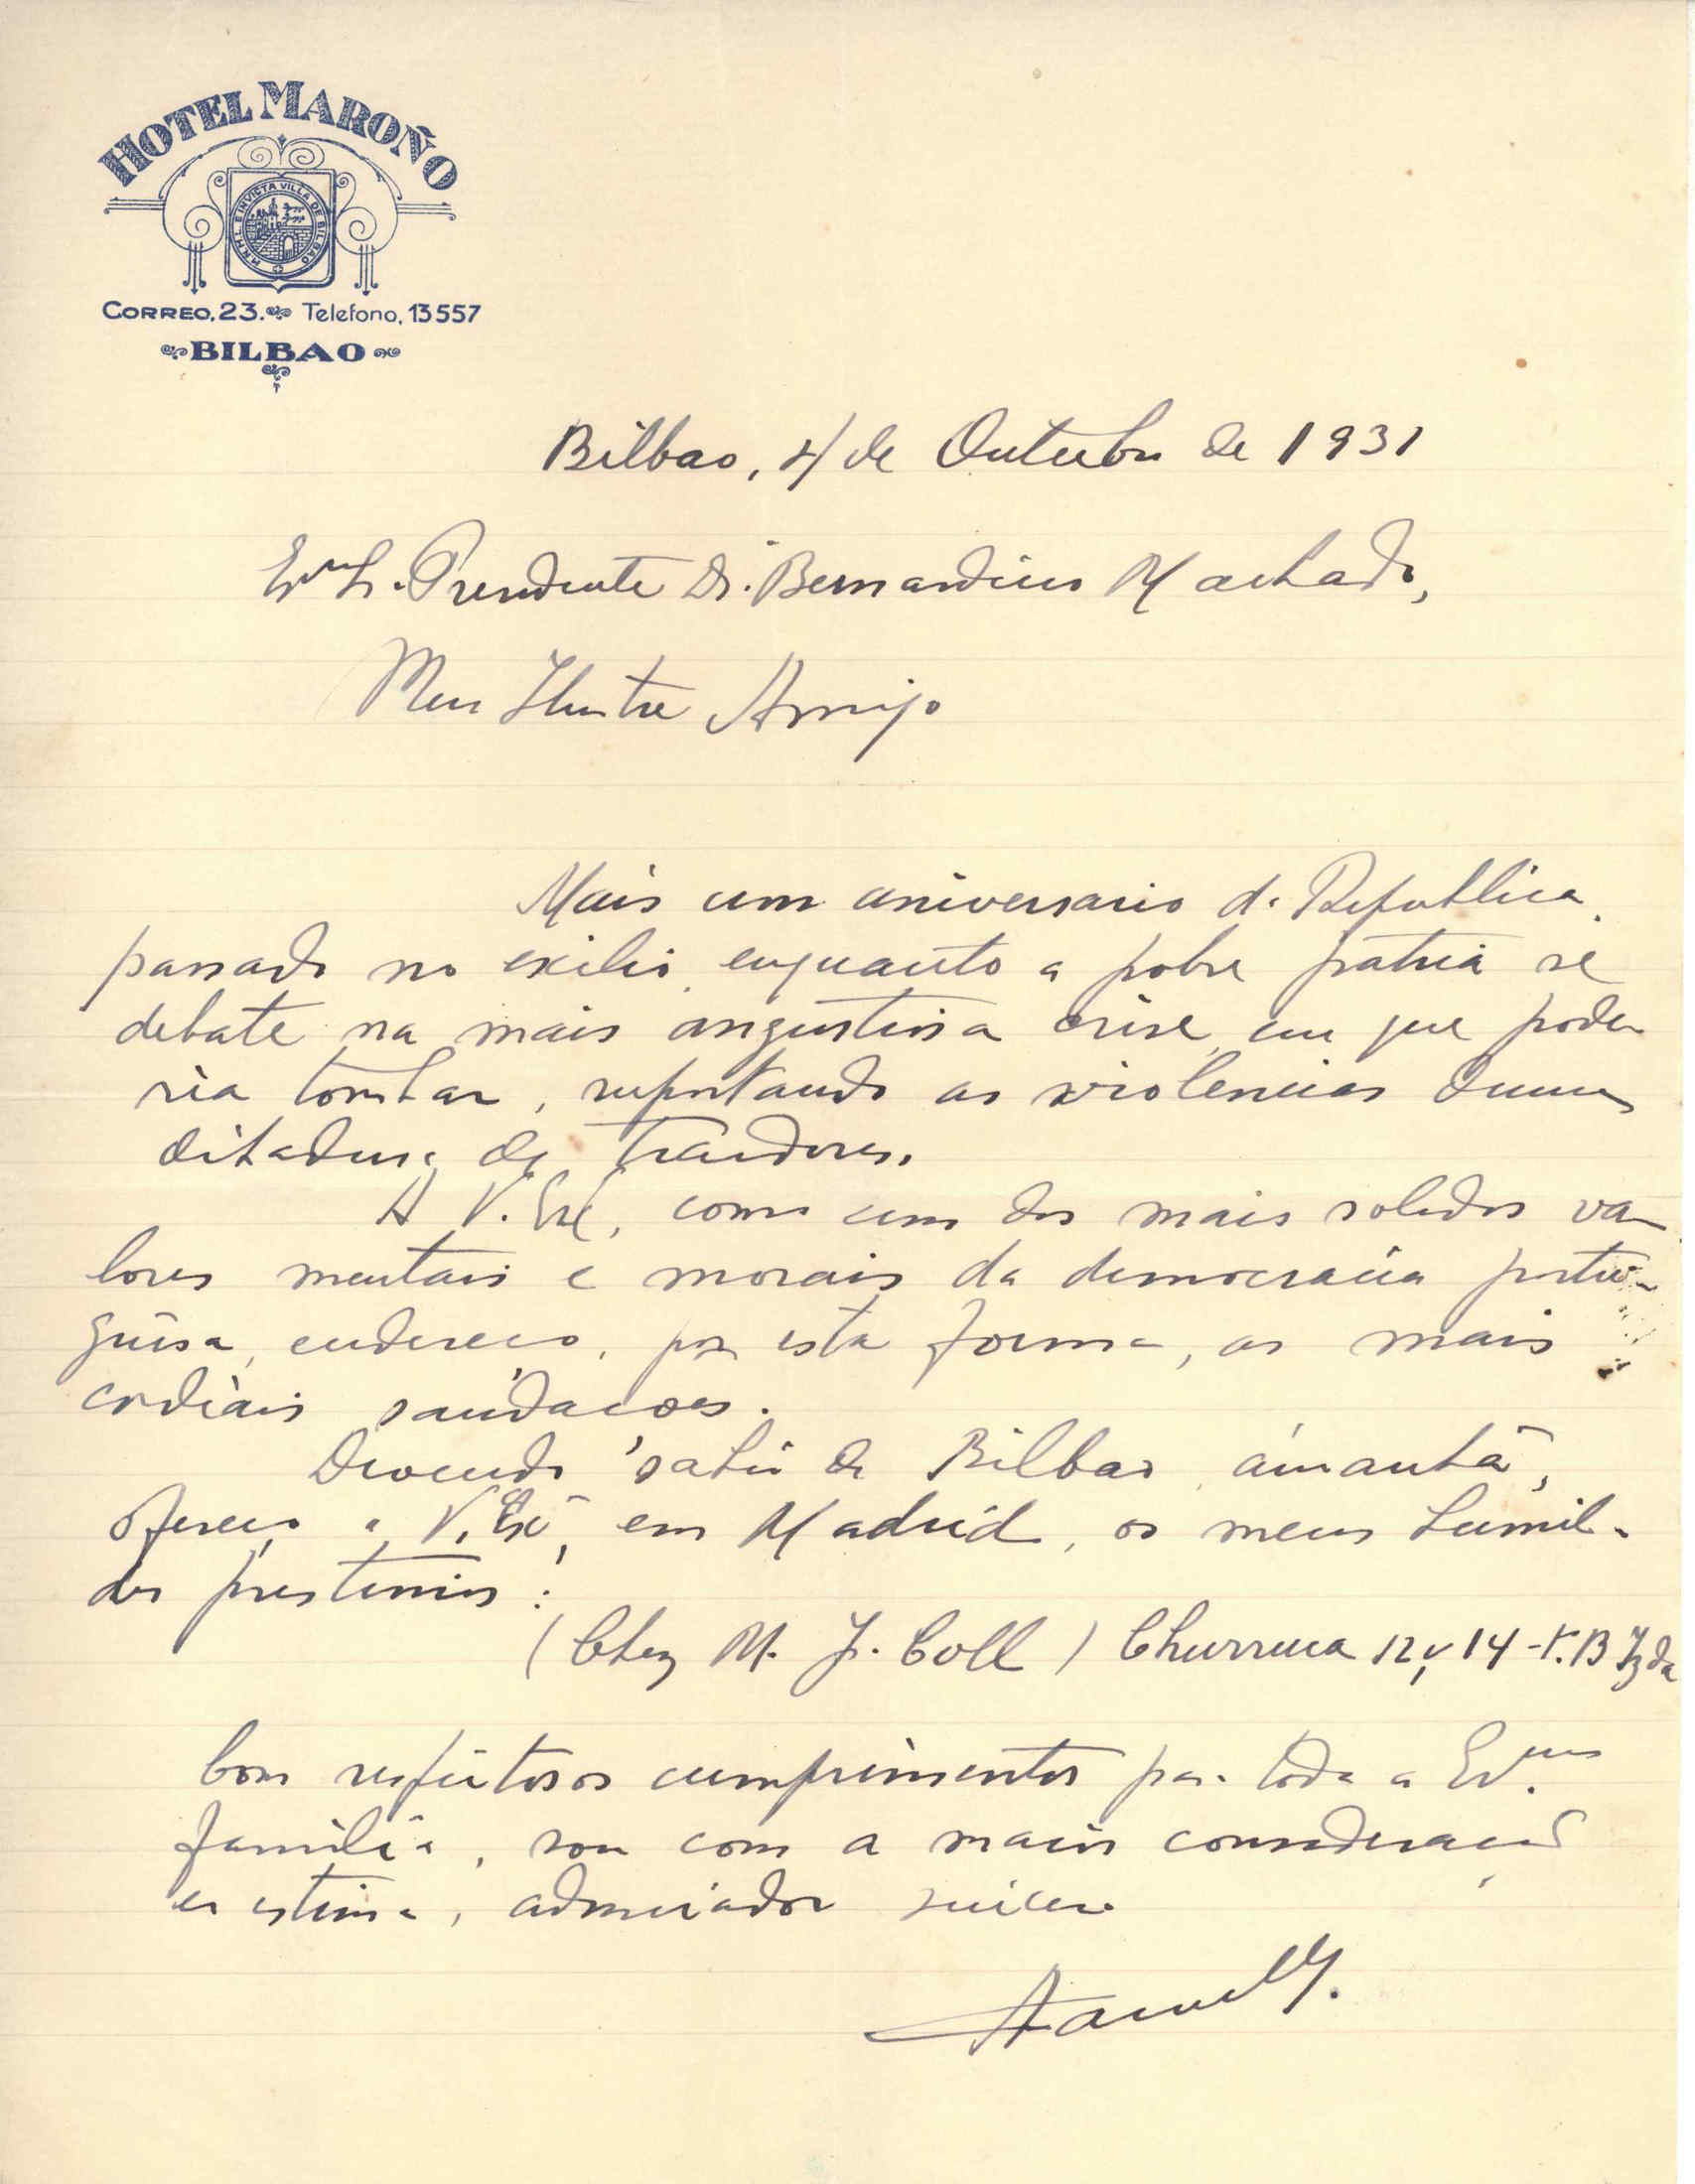 HOTEL MAROÑO
E INVICTA VILLA DE BILBAO
CORREO, 23. Telefono, 13557
BILBAO
Bilbao, 4 de Outubro de 1931
Exmo Sr. Presidente Dr. Bernardino Machado,
Meu Ilustre Amigo
Mais um aniversario da Republica,
passado no exilio, enquanto a pobre pátria se
debate na mais angustiosa crise, em que pode-
ria tombar, suportando as violencias duma
ditadura de traidores.
A V. Exª, como um dos mais solidos va-
lores mentais e morais da democracia portu-
guêsa, endereço, por esta forma, as mais
cordiais saudações.
Devendo sahir de Bilbao, ámanhã,
ofereço a V. Exª, em Madrid, os meus humil-
des prestimos:
(Chez M. J. Coll) Churruca 12 y 14 - B Izda
Com respeitosos cumprimentos para toda a Exma
familia, sou com a maior consideração
e estima, admirador sincero